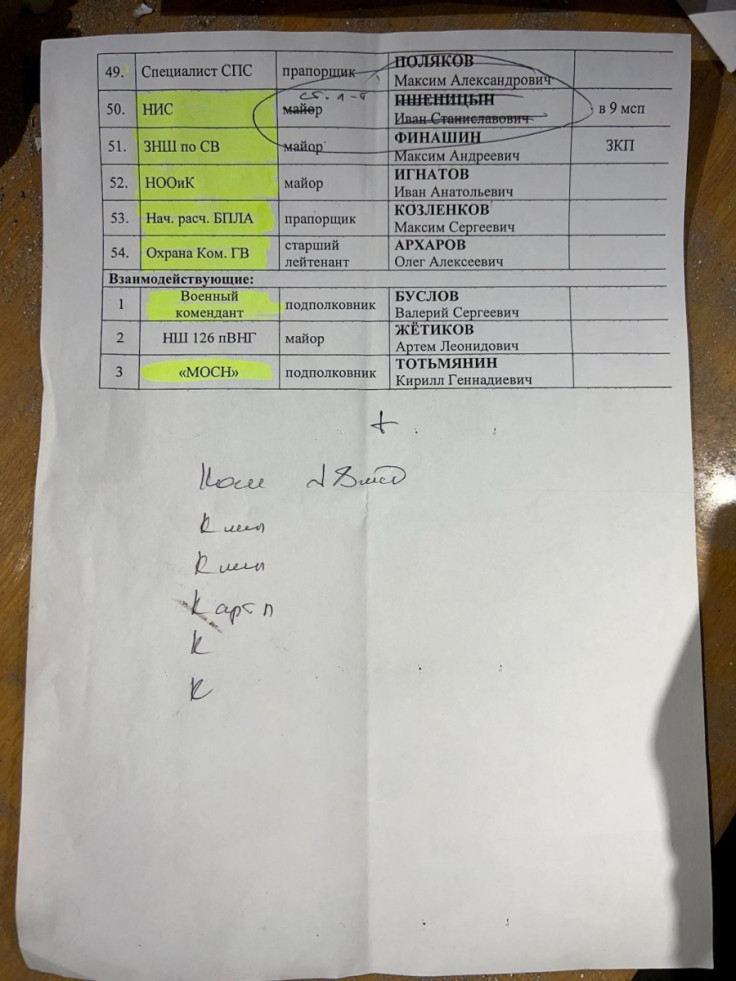 49. Специалист СПС прапорщик ПОЛЯКОВ
Максим Александрович
ст. л-т
50. НИС майор ПШЕНИЦЫН в 9 мсп
Иван Станиславович
51. ЗНШ по СВ майор ФИНАШИН ЗКП
Максим Андреевич
52. НООиК майор ИГНАТОВ
Иван Анатольевич
53. Нач. расч. БПЛА прапорщик КОЗЛЕНКОВ
Максим Сергеевич
54. Охрана Ком. ГВ старший лейтенант АРХАРОВ
Олег Алексеевич
Взаимодействующие:
1 Военный комендант подполковник БУСЛОВ
Валерий Сергеевич
2 НШ 126 пВНГ майор ЖЁТИКОВ
Артем Леонидович
3 «МОСН» подполковник ТОТЬМЯНИН
Кирилл Геннадиевич
+
К
К
К арт п
К
К